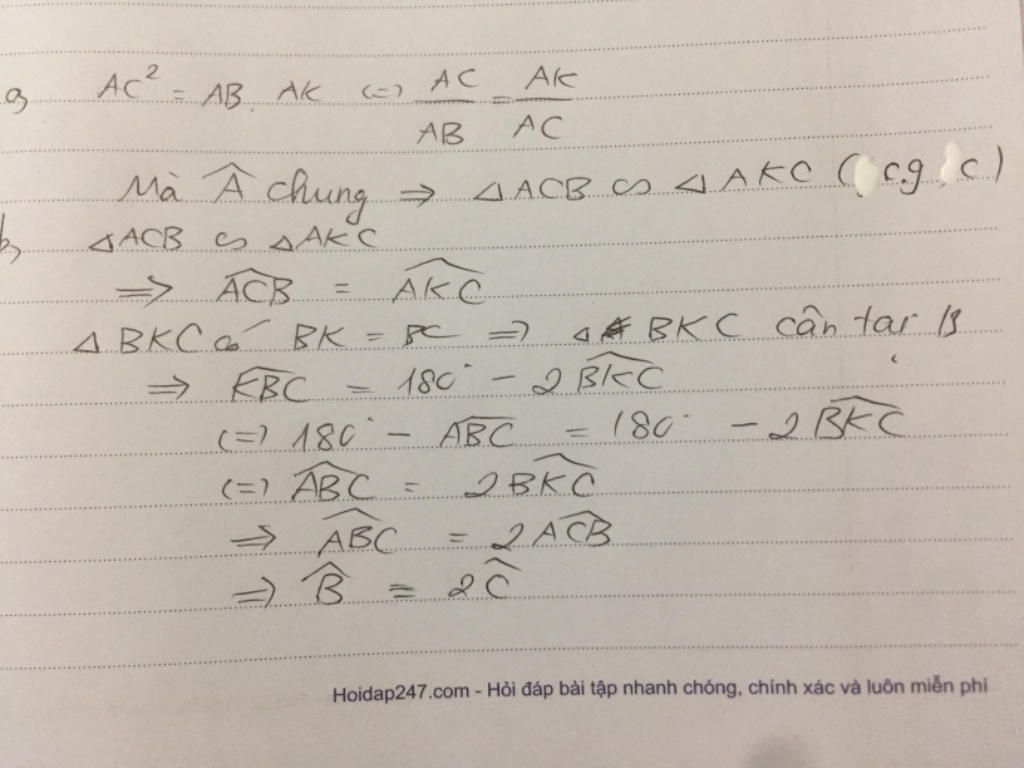 a, AC² = AB. AK (=) AC/AB = AK/AC
Mà Â chung ⇒ △ACB ∽ △AKC (c.g.c)
b, △ACB ∽ △AKC
⇒ \widehat{ACB} = \widehat{AKC}
△BKC có BK = BC ⇒ △BKC cân tại B
⇒ \widehat{KBC} = 180° − 2\widehat{BKC}
(=) 180° − \widehat{ABC} = 180° − 2\widehat{BKC}
(=) \widehat{ABC} = 2\widehat{BKC}
⇒ \widehat{ABC} = 2\widehat{ACB}
⇒ \widehat{B} = 2\widehat{C}
Hoidap247.com - Hỏi đáp bài tập nhanh chóng, chính xác và luôn miễn phí